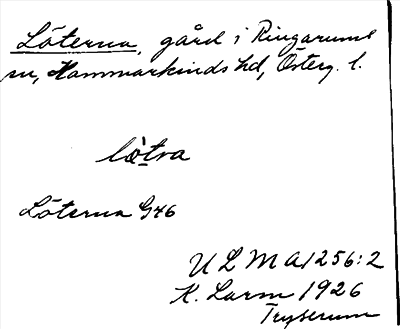 Löterna, gård i Ringarums
sn, Hammarkinds hd, Österg. l.
lö̀tra
Löterna G46
ULMA 1256:2
K. Larm 1926
Tryserum